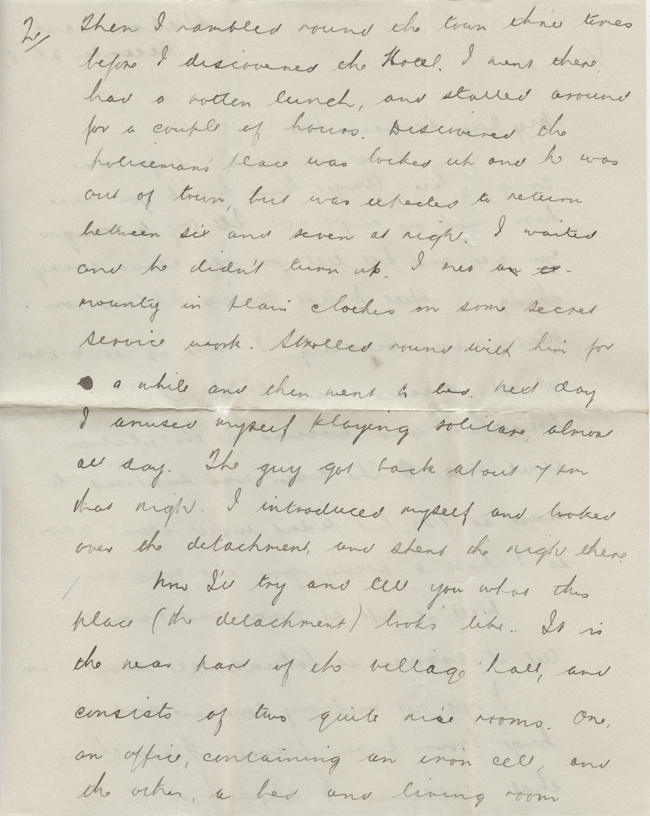 2/ Then I rambled round the town three times
before I discovered the Hotel. I went there,
had a rotten lunch, and stalled around
for a couple of hours. Discovered the
policeman's place was locked up and he was
out of town, but was expected to return
between six and seven at night. I waited
and he didn't turn up. I met an ex-
mounty in plain clothes on some secret
service work. Strolled round with him for
a while and then went to bed. Next day
I amused myself playing solitaire almost
all day. The guy got back about 7 pm
that night. I introduced myself and looked
over the detachment, and spent the night there.
Now I'll try and tell you what this
place (the detachment) looks like. It is
the rear part of the village hall, and
consists of two quite nice rooms. One,
an office, containing an iron cell, and
the other, a bed and living room